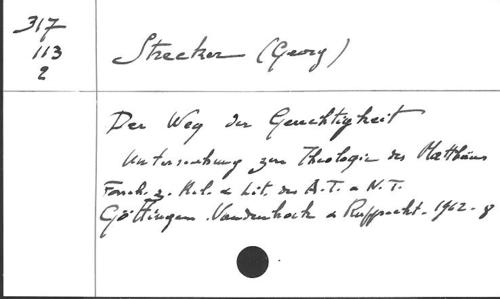 317
113
2
Strecker (Georg)
Der Weg der Gerechtigkeit
Untersuchung zur Theologie des Matthäus
Forsch. z. Rel. & Lit. des A.T. & N.T.
Göttingen. Vandenhoek & Rupprecht. 1962. 8